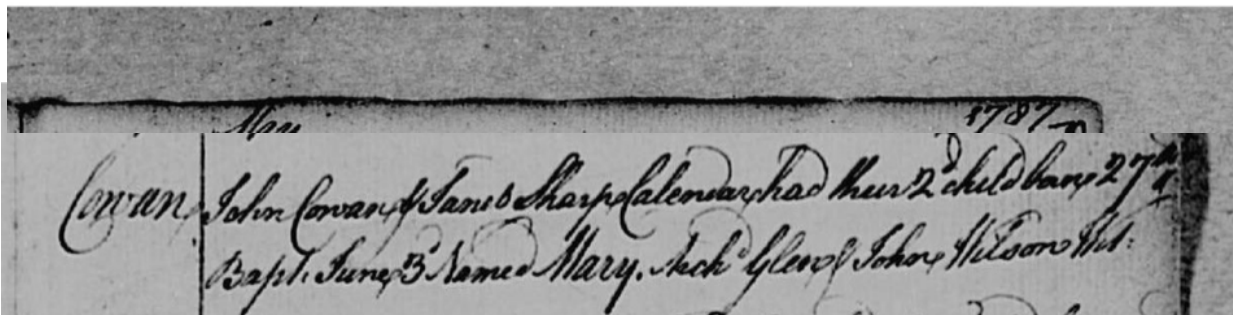 May 1787
Cowan John Cowan & Janet Sharp Calendar had their 2d child born 27th
Bapt: June 3d Named Mary. Archd Glen & John Wilson Wit: